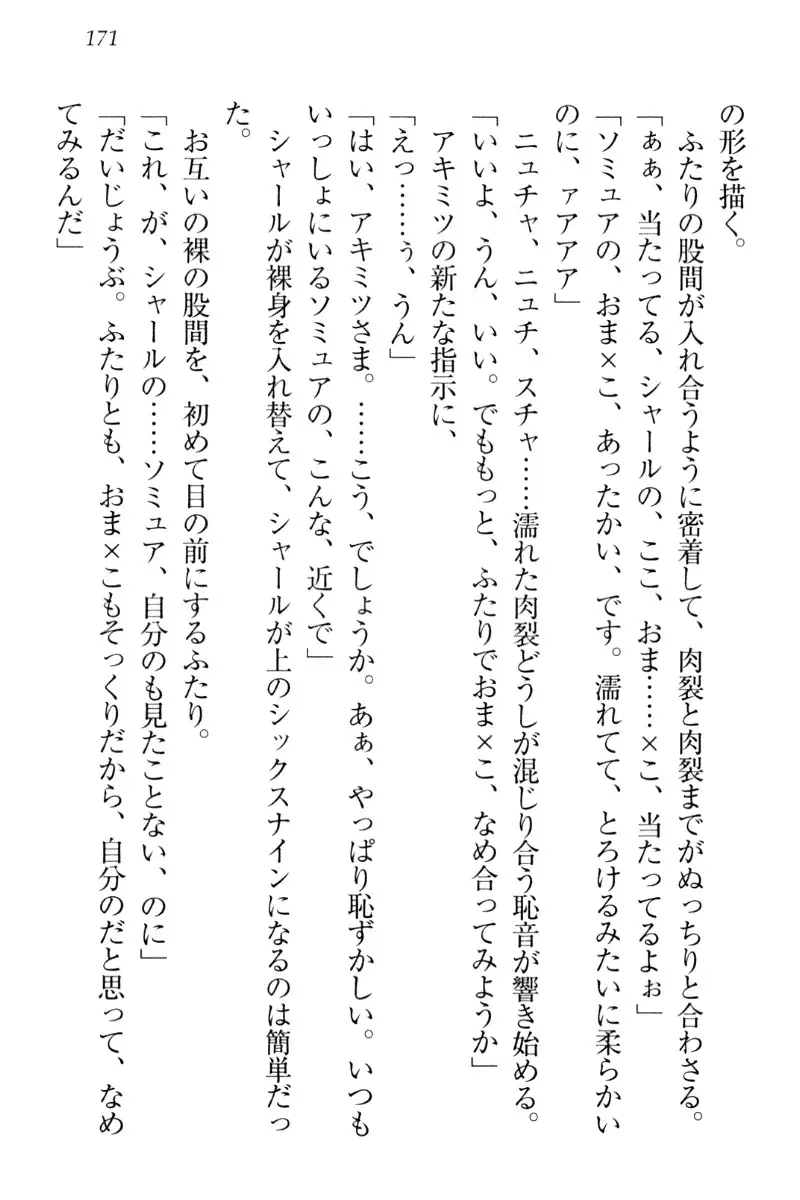 171
の形を描く。
ふたりの股間が入れ合うように密着して、肉裂と肉裂までがぬっちりと合わさる。
「ぁぁ、当たってる、シャールの、ここ、おま……×こ、当たってるよぉ」
「ソミュアの、おま×こ、あったかい、です。濡れてて、とろけるみたいに柔らかい
のに、ァアアア」
ニュチャ、ニュチ、スチャ……濡れた肉裂どうしが混じり合う恥音が響き始める。
「いいよ、うん、いい。でももっと、ふたりでおま×こ、なめ合ってみようか」
アキミツの新たな指示に、
「えっ……ぅ、うん」
「はい、アキミツさま。……こう、でしょうか。あぁ、やっぱり恥ずかしい。いつも
いっしょにいるソミュアの、こんな、近くで」
シャールが裸身を入れ替えて、シャールが上のシックスナインになるのは簡単だっ
た。
お互いの裸の股間を、初めて目の前にするふたり。
「これ、が、シャールの……ソミュア、自分のも見たことない、のに」
「だいじょうぶ。ふたりとも、おま×こもそっくりだから、自分のだと思って、なめ
てみるんだ」